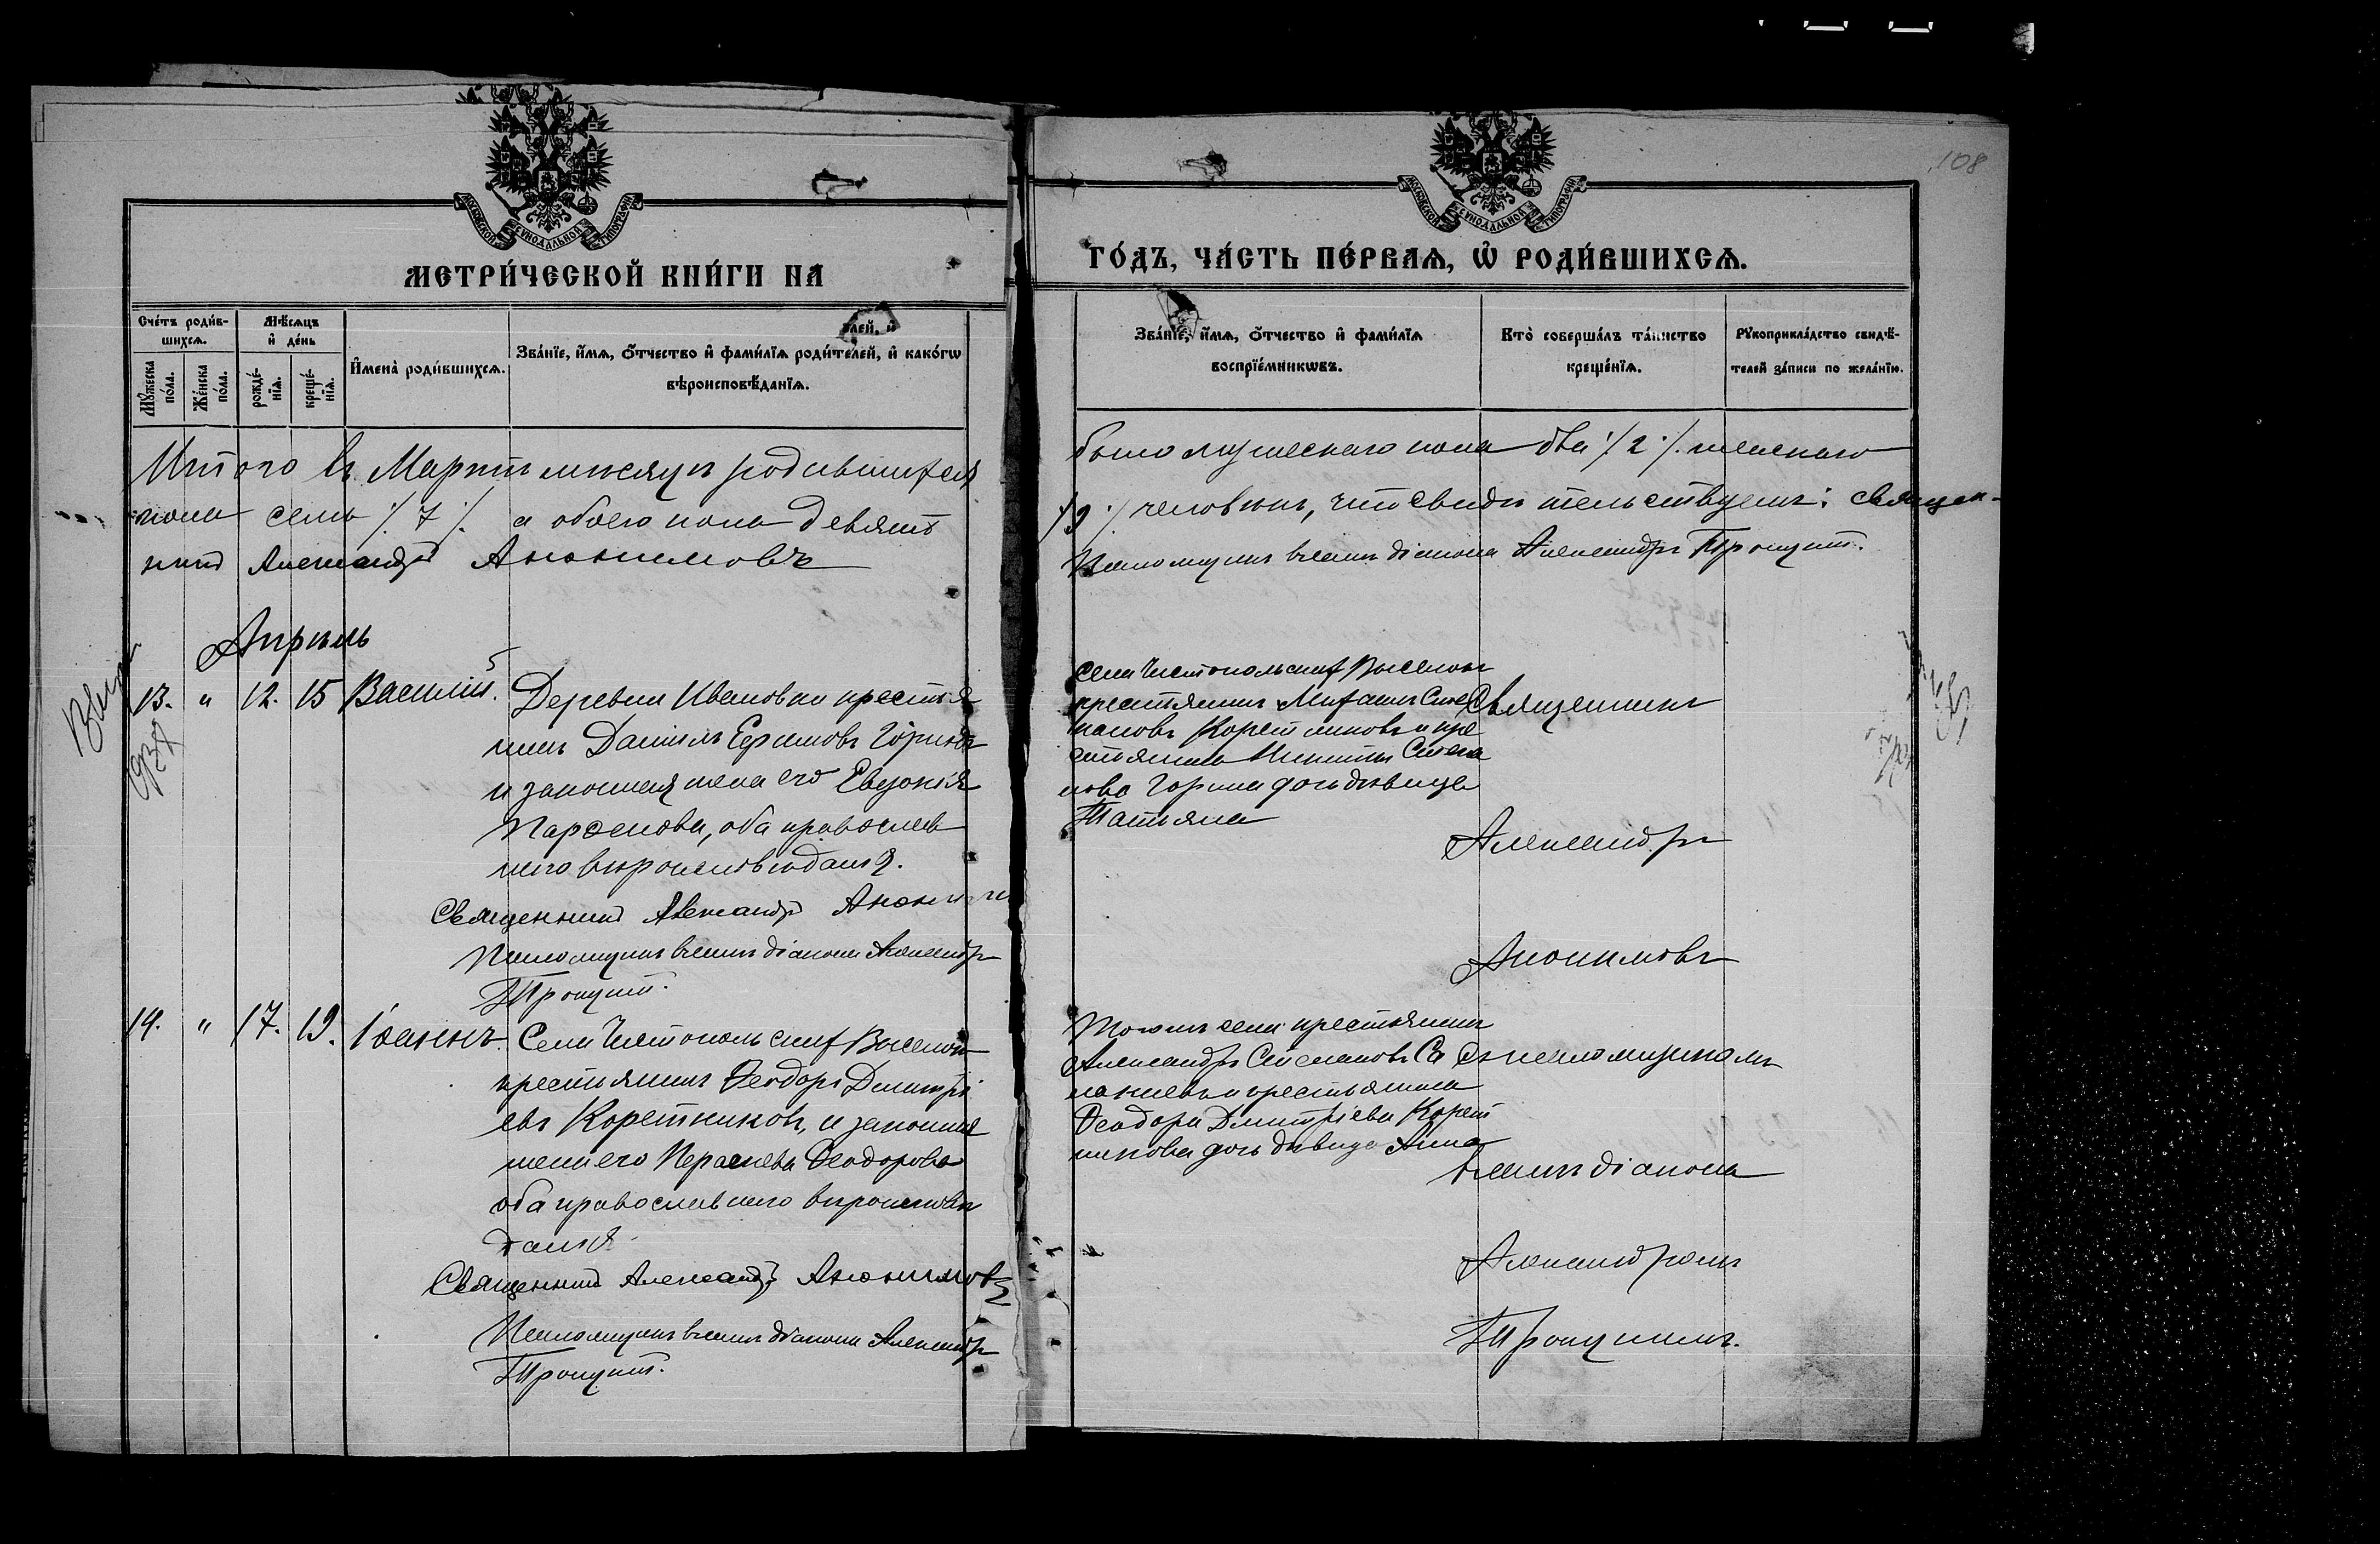 108
МОСКОВСКОЙ СѴНОДАЛЬНОЙ ТИПОГРАФІИ
МЕТРИ́ЧЕСКОЙ КНИ́ГИ НА
Сче́тъ роди́в-
шихсѧ.
Мѣ́сѧцъ
и҆ де́нь
Мꙋ́жеска
по́ла.
Же́нска
по́ла.
рожде́-
нїѧ.
креще́-
нїѧ.
И҆мена̀ роди́вшихсѧ.
лей, и҆
Зва́нїе, и҆́мѧ, ѻ҆́тчество и҆ фами́лїѧ роди́телей, и҆ како́гѡ
вѣроисповѣ́данїѧ.
Итого въ Мартѣ мѣсяцѣ родившихся
пола семь /7/. а обоего пола девять
никъ Александръ Анонимовъ
Апрѣль
13. " 12. 15 Василій.
Деревни Ивановки крестья
нинъ Даніилъ Ефимовъ Горинъ
и законная жена его Евдокія
Парѳенова, оба православ
наго вѣроисповѣданія.
Священникъ Александръ
Псаломщикъ въ санѣ діакона Александръ
14. " 17. 19. Іоаннъ.
Села Чистопольскихъ Выселокъ
крестьянинъ Ѳеодоръ Димитрі
евъ Коретниковъ, и законная
жена его Параскева Ѳеодорова
оба православнаго вѣроисповѣ
данія
Священникъ Александръ Анонимовъ
Псаломщикъ въ санѣ діакона Александръ
МОСКОВСКОЙ СѴНОДАЛЬНОЙ ТИПОГРАФІИ
ГО́ДЪ, ЧА́СТЬ ПЕ́РВАѦ, Ѡ҆ РОДИ́ВШИХСѦ.
Зва́нїе, и҆́мѧ, ѻ҆́тчество и҆ фами́лїѧ
воспрїе́мникѡвъ.
Кто̀ соверша́лъ та́инство
креще́нїѧ.
Рꙋкоприкла́дство свидѣ́-
телей за́писи по жела́нїю.
было мужескаго пола два /2/. женскаго
/9/ человѣкъ, что свидѣтельствуемъ: Священ-
Псаломщикъ въ санѣ діакона Александръ
села Чистопольскихъ Выселокъ
крестьянинъ Михаилъ Сте
пановъ Коретниковъ и кре
стьянина Никиты Степа
нова Горина дочь дѣвица
Татьяна
Священникъ
Александръ
Анонимовъ
Тогоже села крестьянинъ
Александръ Степановъ
и крестьянина
Ѳеодора Дмитріева Корет
никова дочь дѣвица Анна
съ псаломщикомъ
въ санѣ діакона
Александромъ